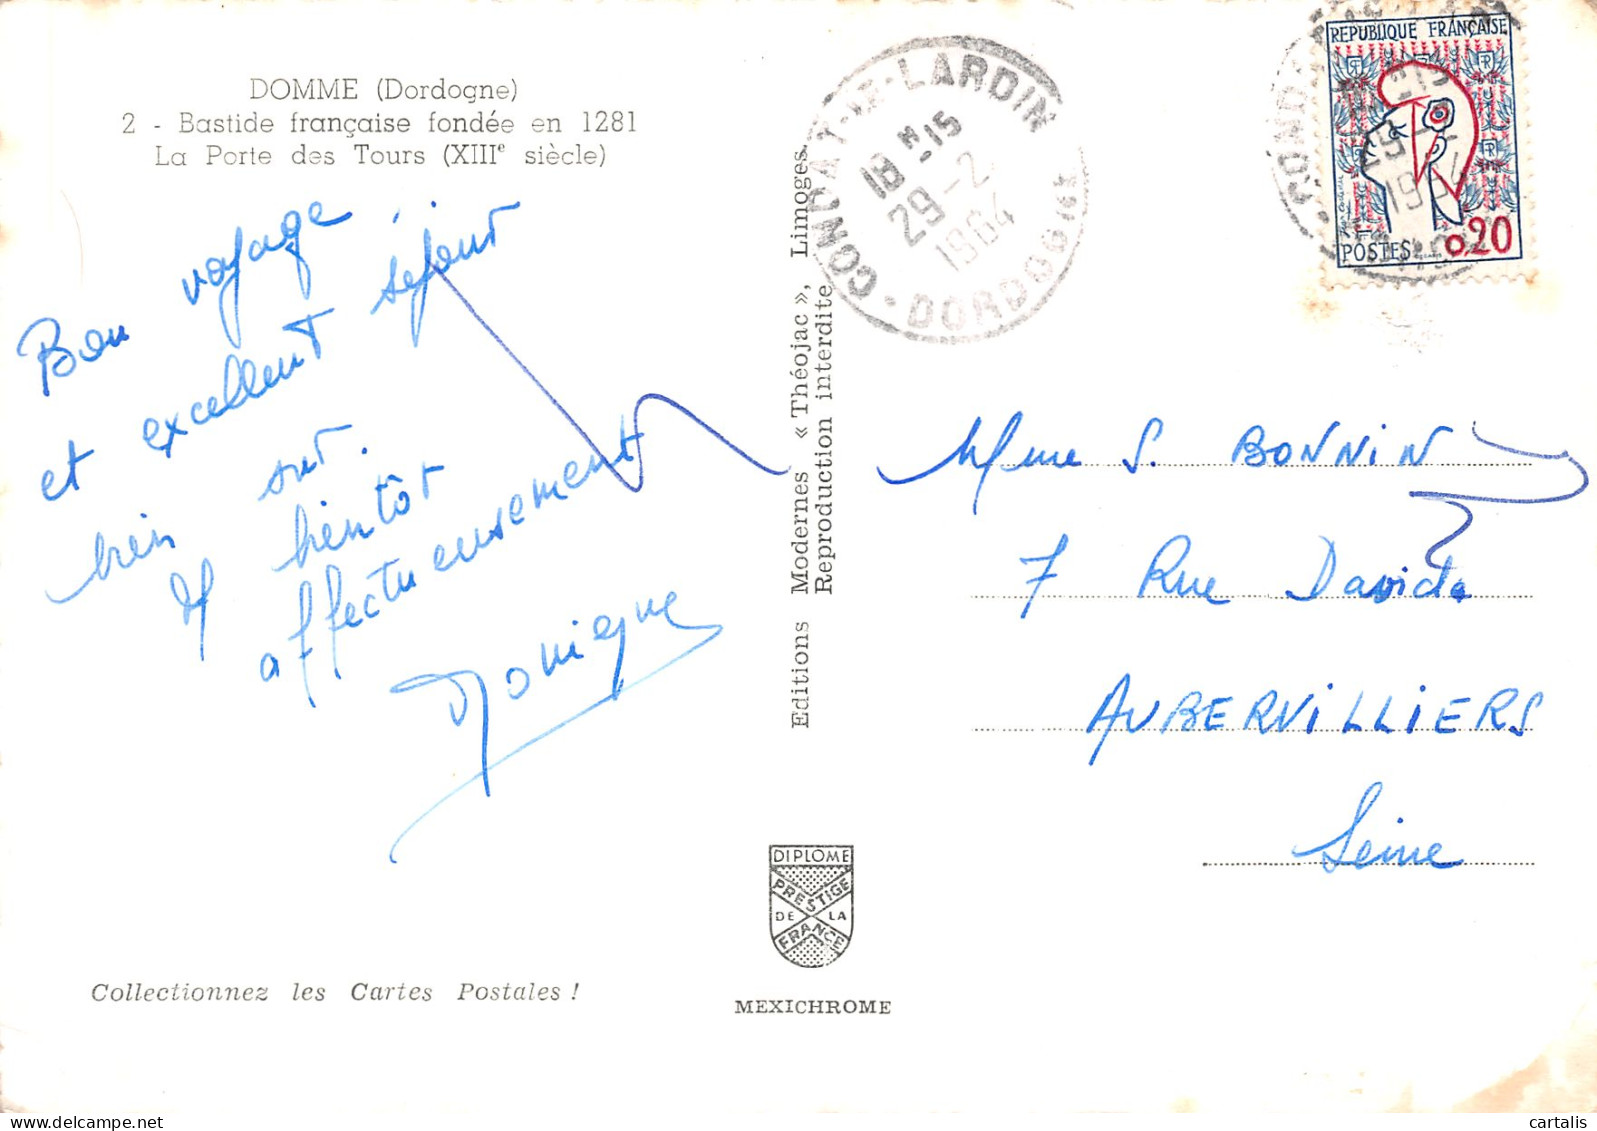 DOMME (Dordogne)
2 - Bastide française fondée en 1281
La Porte des Tours (XIIIe siècle)
Bon voyage
et excellent séjour
bien sur.
A bientôt
affectueusement
Monique
Collectionnez les Cartes Postales !
Editions Modernes « Théojac », Limoges.
Reproduction interdite
DIPLOME
PRESTIGE
DE LA
FRANCE
MEXICHROME
CONDAT-LE-LARDIN
18 H-15
29-2
1964
DORDOGNE
REPUBLIQUE FRANÇAISE
POSTES
0,20
Mme S. BONNIN
7 Rue David
AUBERVILLIERS
Seine
cartalis